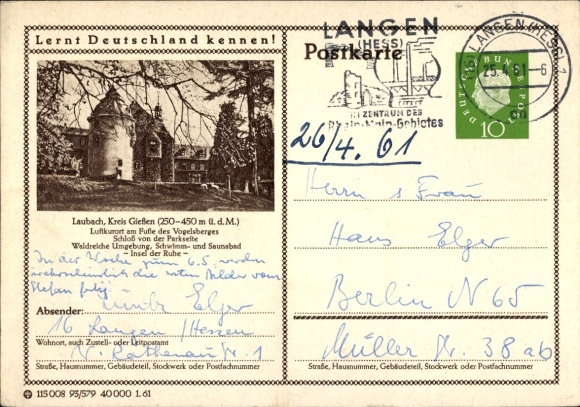 Lernt Deutschland kennen!
Laubach, Kreis Gießen (250–450 m ü. d. M.)
Luftkurort am Fuße des Vogelsberges
Schloß von der Parkseite
Waldreiche Umgebung, Schwimm- und Saunabad
– Insel der Ruhe –
In der Woche zum 6.5. werden
wahrscheinlich die ersten Bilder vom
Stefan fertig
Absender:
Elger
16 Langen / Hessen
Wohnort, auch Zustell- oder Leitpostamt
W. Rathenau Str. 1
Straße, Hausnummer, Gebäudeteil, Stockwerk oder Postfachnummer
115 008 93/579 40 000 1. 61
LANGEN
(HESS)
IM ZENTRUM DES
Rhein-Main-Gebietes
Postkarte
(16) LANGEN (HESS) 1
25.4.61-6
DEUTSCHE BUNDESPOST
10
26/4. 61
Herrn u Frau
Hans Elger
Berlin N 65
Müller Str. 38 ab
Straße, Hausnummer, Gebäudeteil, Stockwerk oder Postfachnummer